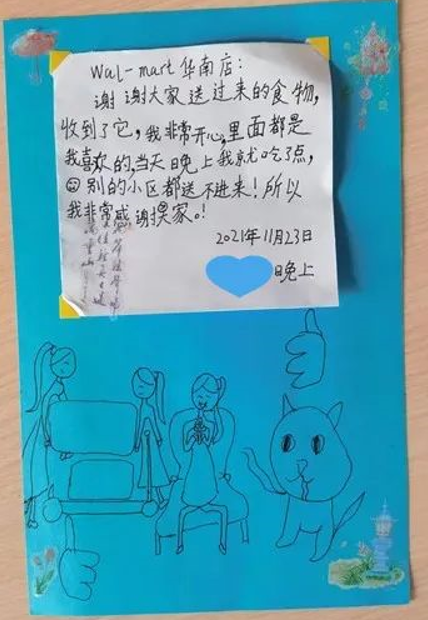 Wal-mart 华南店：
谢谢大家送过来的食物，
收到了它，我非常开心，里面都是
我喜欢的，当天晚上我就吃了点，
别的小区都送不进来！所以
我非常感谢大家。！
2021年11月23日
晚上